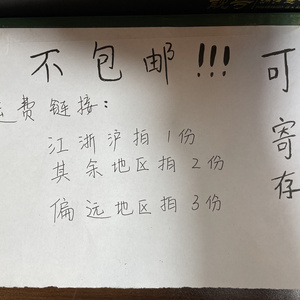 不包邮!!!
运费链接:
江浙沪拍1份
其余地区拍2份
偏远地区拍3份
可寄存